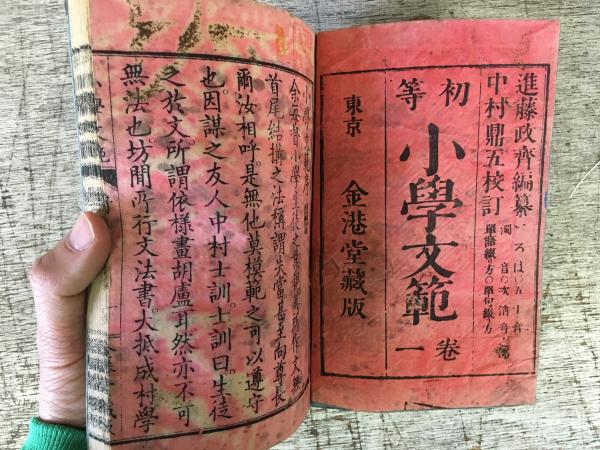 進藤政齊編纂
いろは〇五十音
濁音〇次清音
單語綴方〇單句綴方
中村鼎五校訂
初等
小學文範
卷一
東京 金港堂藏版
小學文範序
首尾結構之法稱謂失當甚至向尊長
爾汝相呼是無他莫模範之可以遵守
也因謀之友人中村士訓士訓曰生徒
之於文所謂依樣畫胡盧耳然亦不可
無法也坊間乃行文法書大抵成村學